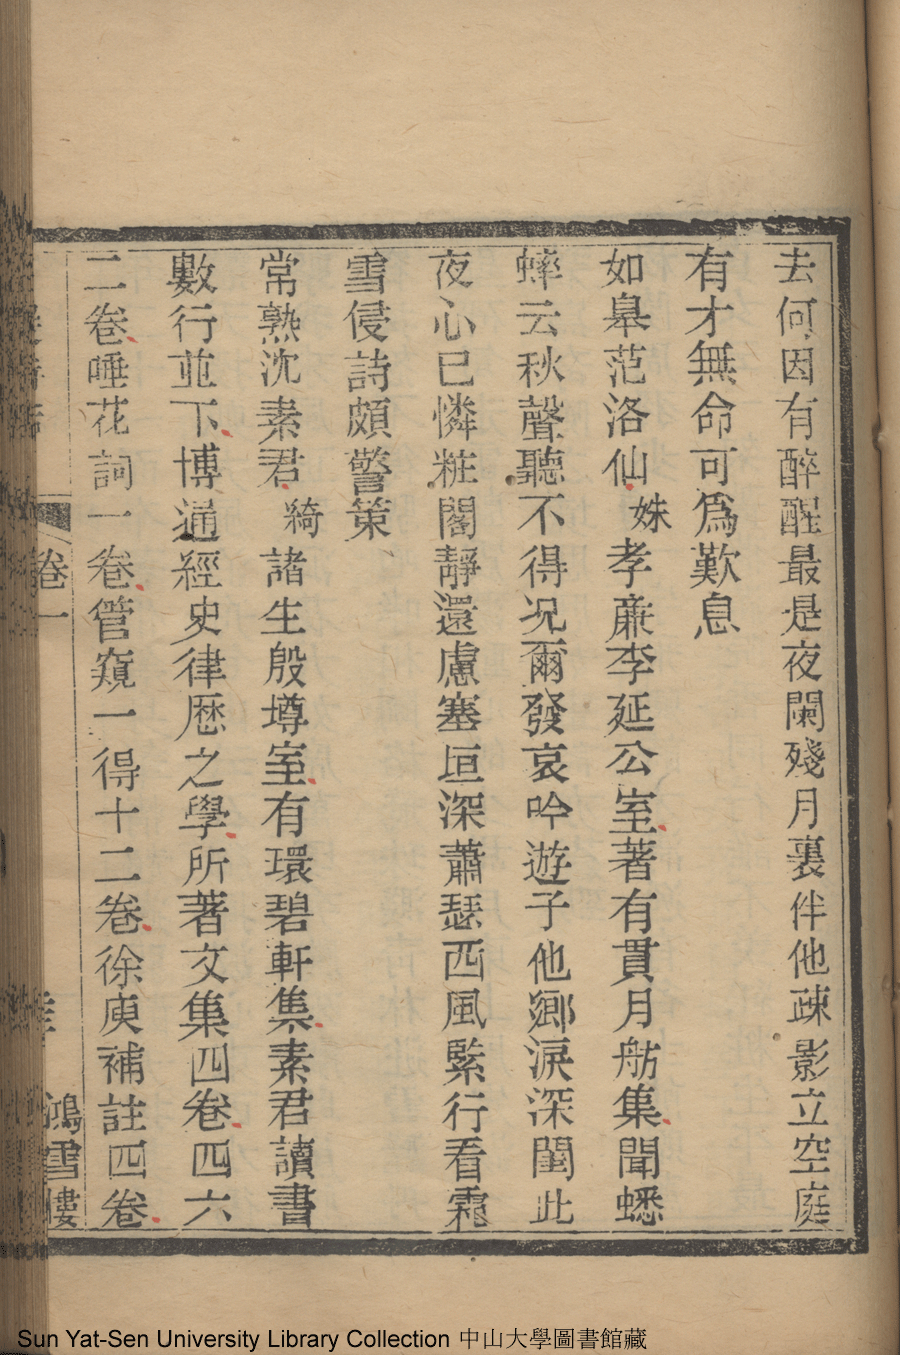 去何因有醉醒最是夜闌殘月裏伴他疎影立空庭
有才無命可爲歎息
如臯范洛仙姝孝亷李延公室著有貫月舫集聞蟋
蟀云秋聲聽不得况爾發哀吟遊子他鄉淚深閨此
夜心已憐粧閣靜還慮塞垣深蕭瑟西風緊行看霜
雪侵詩頗警策
常熟沈素君綺諸生殷墫室有環碧軒集素君讀書
數行並下博通經史律厯之學所著文集四卷四六
二卷唾花詞一卷管窺一得十二卷徐庾補註四卷
卷一
鴻雪樓
Sun Yat-Sen University Library Collection 中山大學圖書館藏